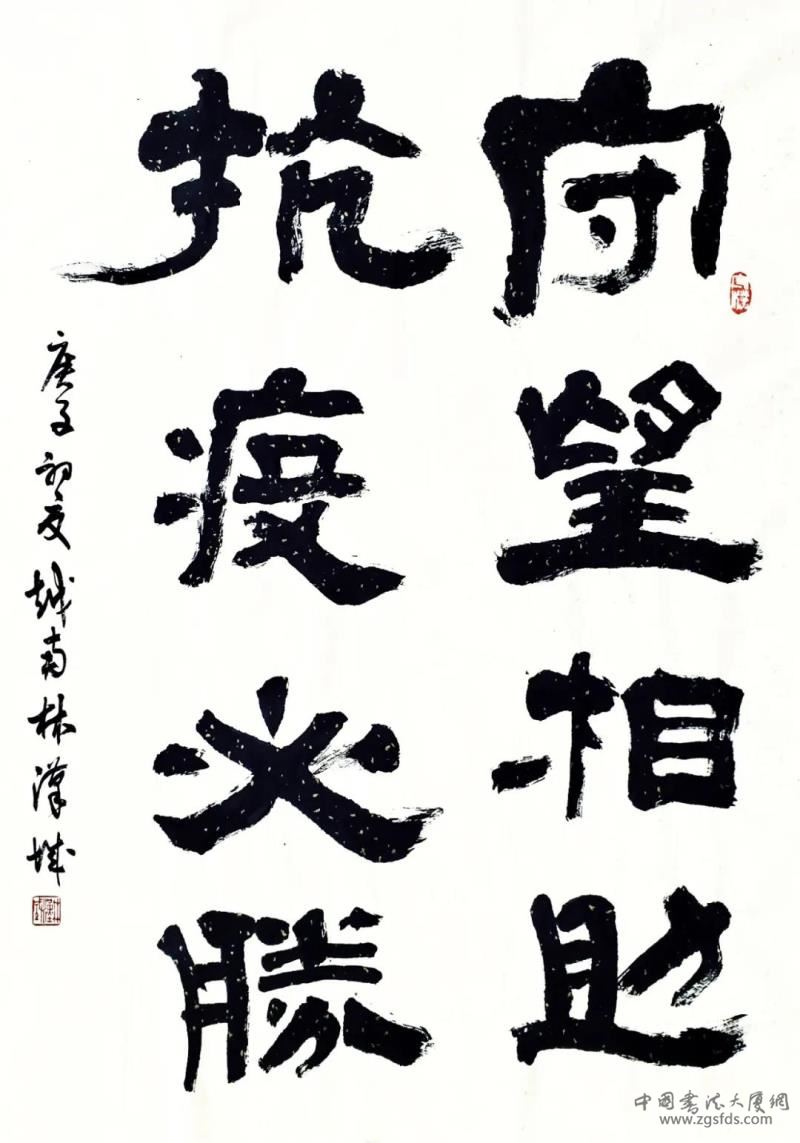 守望相助
抗疫必勝
庚子初夏越南林漢城
中国书法大厦網
www.zgsfds.com